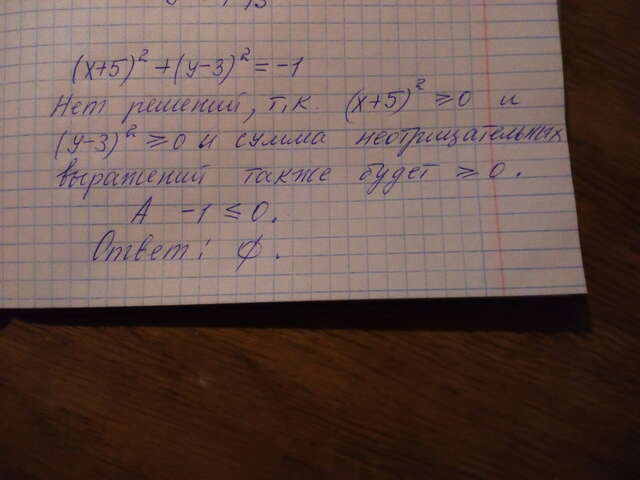 (x+5)² + (y-3)² = -1
Нет решений, т.к. (x+5)² ≥ 0 и
(y-3)² ≥ 0 и сумма неотрицательных
выражений также будет ≥ 0.
А -1 ≤ 0.
Ответ: ∅.